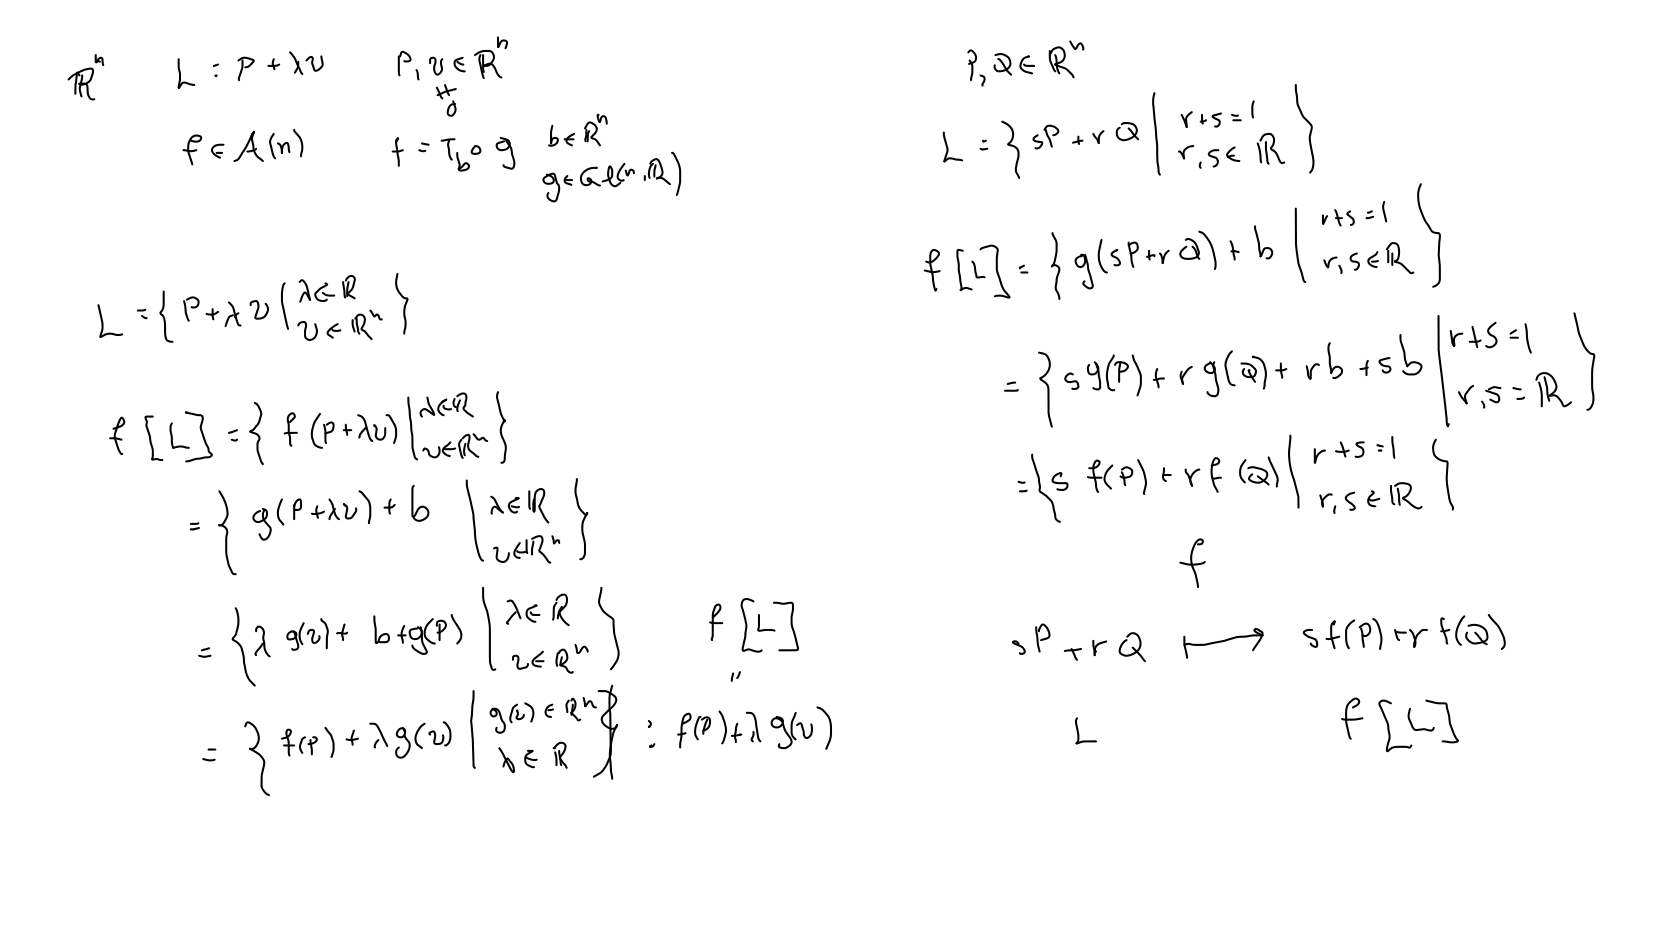 ℝⁿ L : P + λv P, v ∈ ℝⁿ
≠
0
f ∈ A(n) f = T_b ∘ g b ∈ ℝⁿ
g ∈ Gl(n, ℝ)
L = { P + λv | λ ∈ ℝ
v ∈ ℝⁿ }
f [L] = { f (P + λv) | λ ∈ ℝ
v ∈ ℝⁿ }
= { g(P + λv) + b | λ ∈ ℝ
v ∈ ℝⁿ }
= { λ g(v) + b + g(P) | λ ∈ ℝ
v ∈ ℝⁿ } f [L]
"
= { f(P) + λ g(v) | g(v) ∈ ℝⁿ
λ ∈ ℝ } : f(P) + λ g(v)
P, Q ∈ ℝⁿ
L = { sP + r Q | r + s = 1
r, s ∈ ℝ }
f [L] = { g(sP + r Q) + b | r + s = 1
r, s ∈ ℝ }
= { s g(P) + r g(Q) + r b + s b | r + s = 1
r, s = ℝ }
= { s f(P) + r f (Q) | r + s = 1
r, s ∈ ℝ }
f
sP + r Q ⟼ s f(P) + r f(Q)
L f [L]